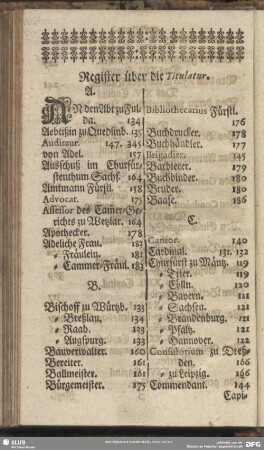 Register über die Titulatur.
A.
AN den Abt zu Ful-
da. 134
Aebtißin zu Quedlinb. 135
Auditeur. 147. 345
von Adel. 157
Ausschuß im Churfür-
stenthum Sachs. 164
Amtmann Fürstl. 158
Advocat. 175
Assessor des Camer-Ge-
richts zu Wetzlar. 164
Apothecker. 178
Adeliche Frau. 183
- Fräulein. 181
- Cammer-Fräul. 183
B.
Bischoff zu Würtzb. 133
- Breßlau. 134
- Raab. 133
- Augspurg. 133
Bauverwalter. 160
Bereiter. 161
Ballmeister. 161
Bürgemeister. 175
Bibliothecarius Fürstl.
176
Buchdrucker. 178
Buchhändler. 177
Brigadier. 145
Barbierer. 179
Buchbinder. 180
Bruder. 180
Baase. 186
C.
Cantor. 140
Cardinal. 131. 132
Churfürst zu Mäyntz. 119
- Trier. 119
- Cölln. 120
- Bayern. 121
- Sachsen. 121
- Brandenburg. 121
- Pfaltz. 121
- Hannover. 122
Consistorium zu Dreß-
den. 166
- zu Leipzig. 166
Commendant. 144
Capi-